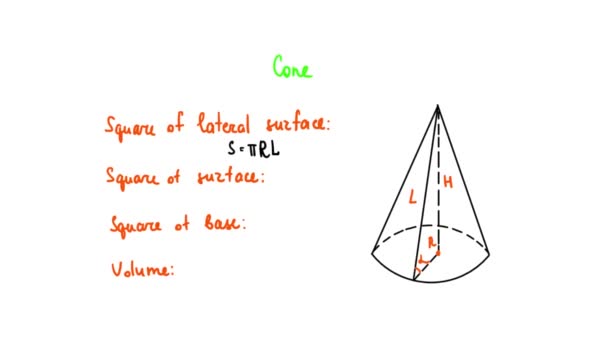 Cone
Square of lateral surface:
S=πRL
Square of surface:
Square of base:
Volume:
L
H
R
α